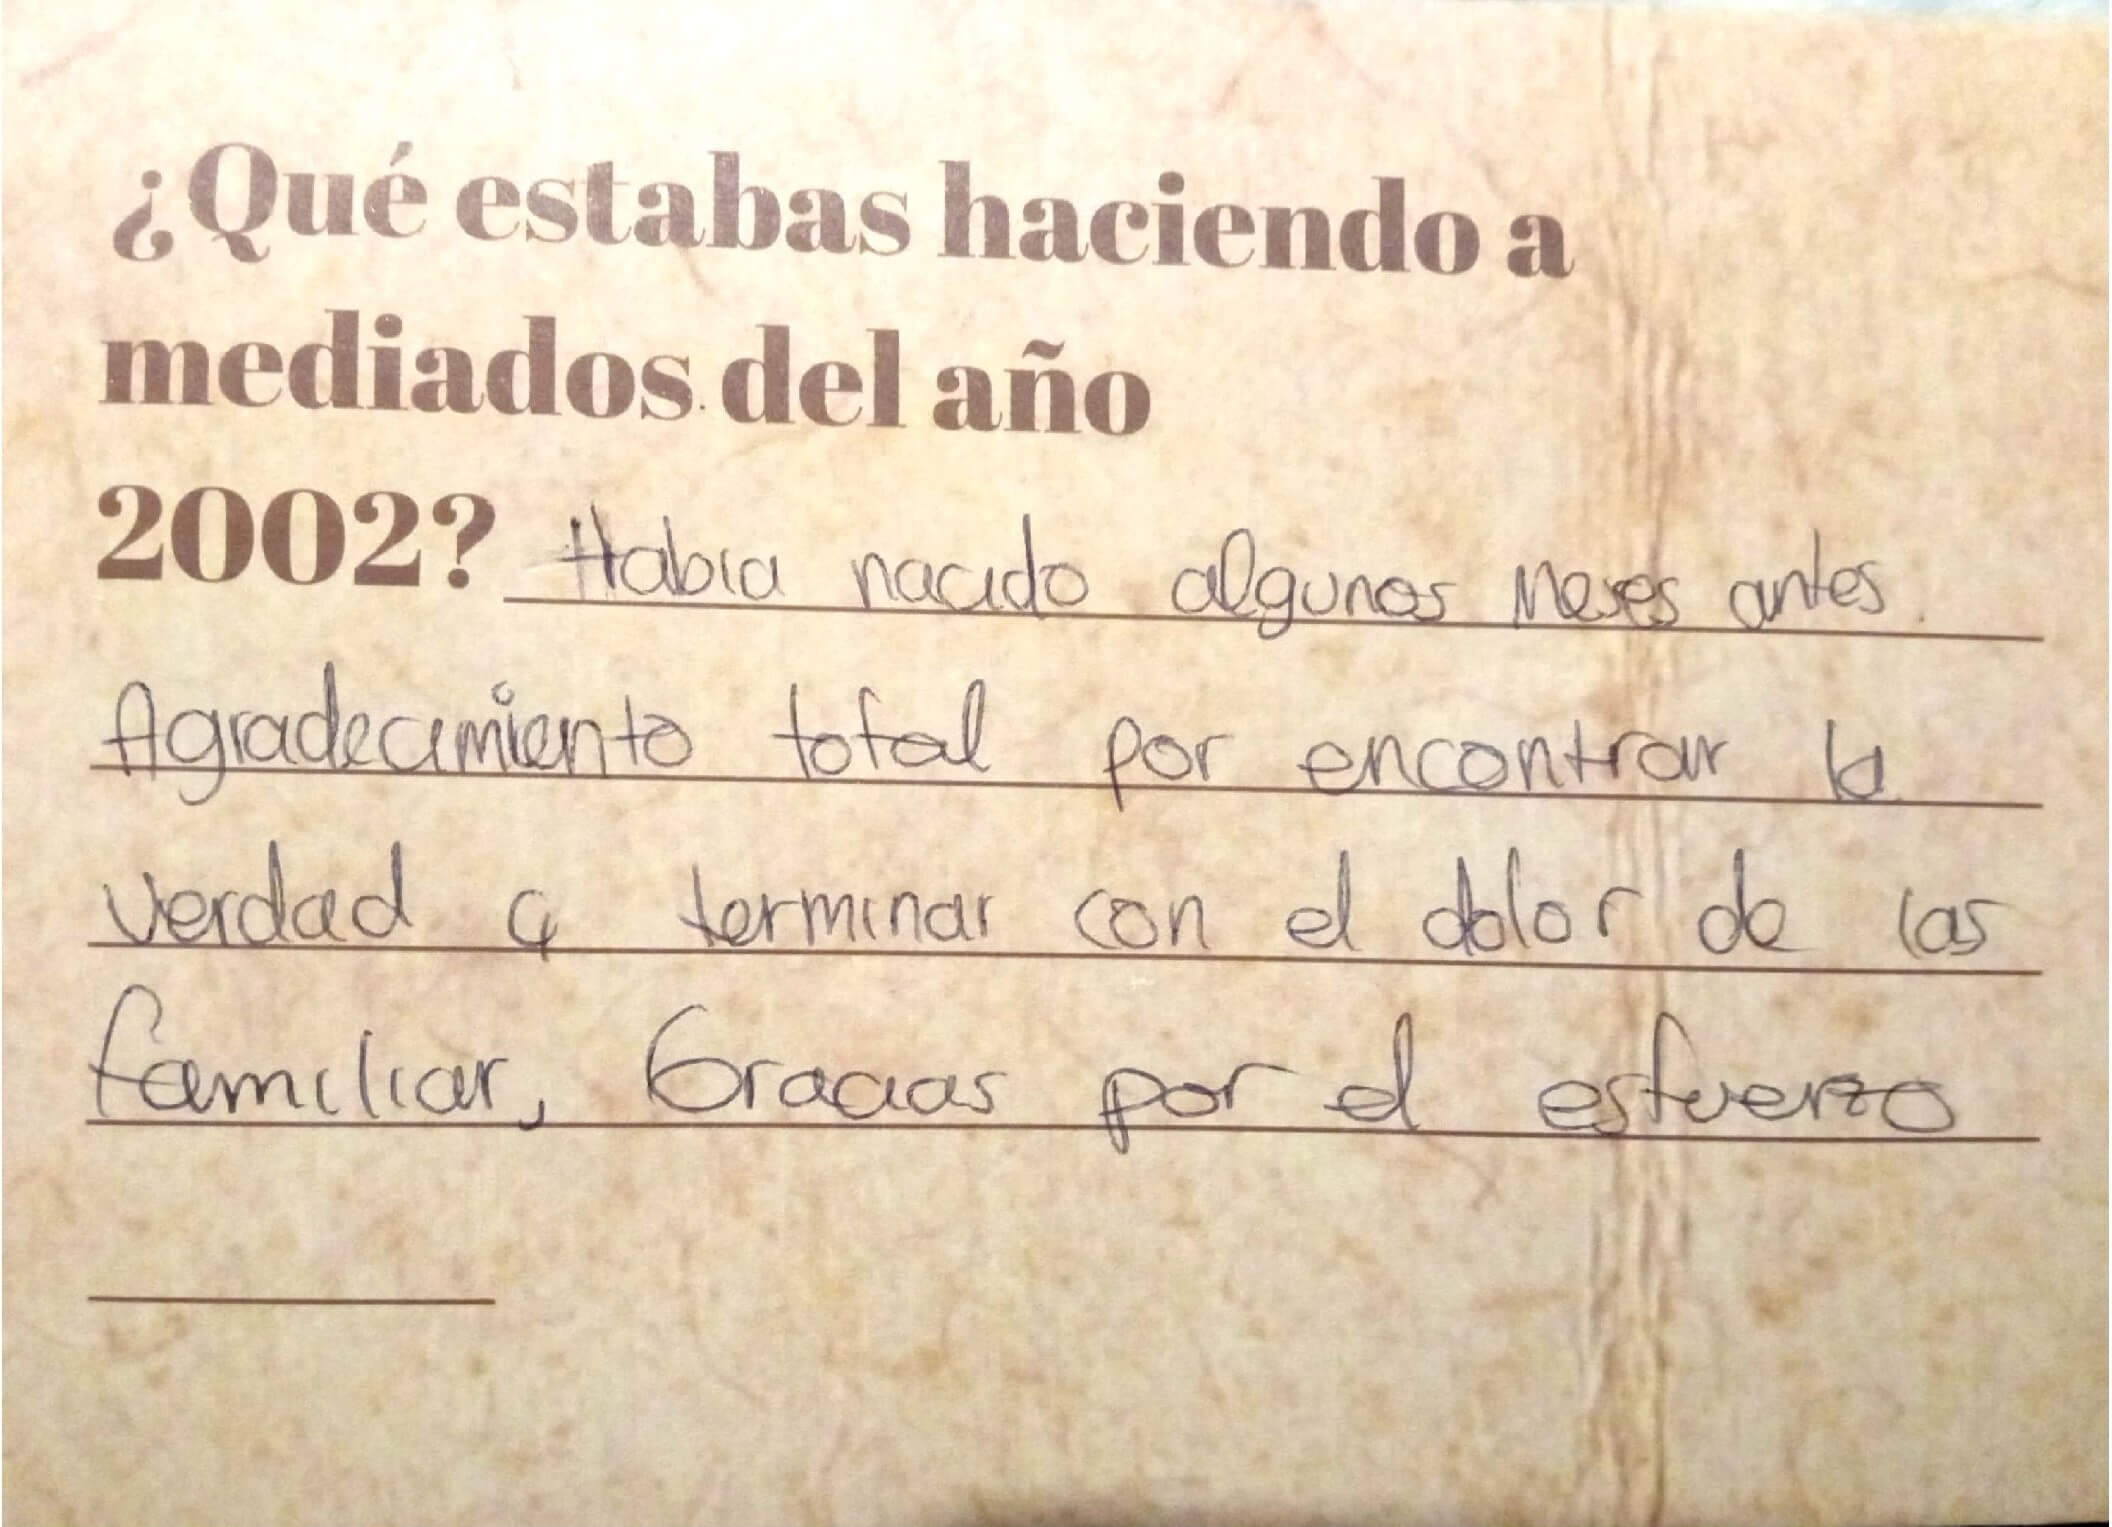 ¿Qué estabas haciendo a
mediados del año
2002? Habia nacido algunos meses antes.
Agradecimiento total por encontrar la
verdad y terminar con el dolor de las
familiar, Gracias por el esfuerzo